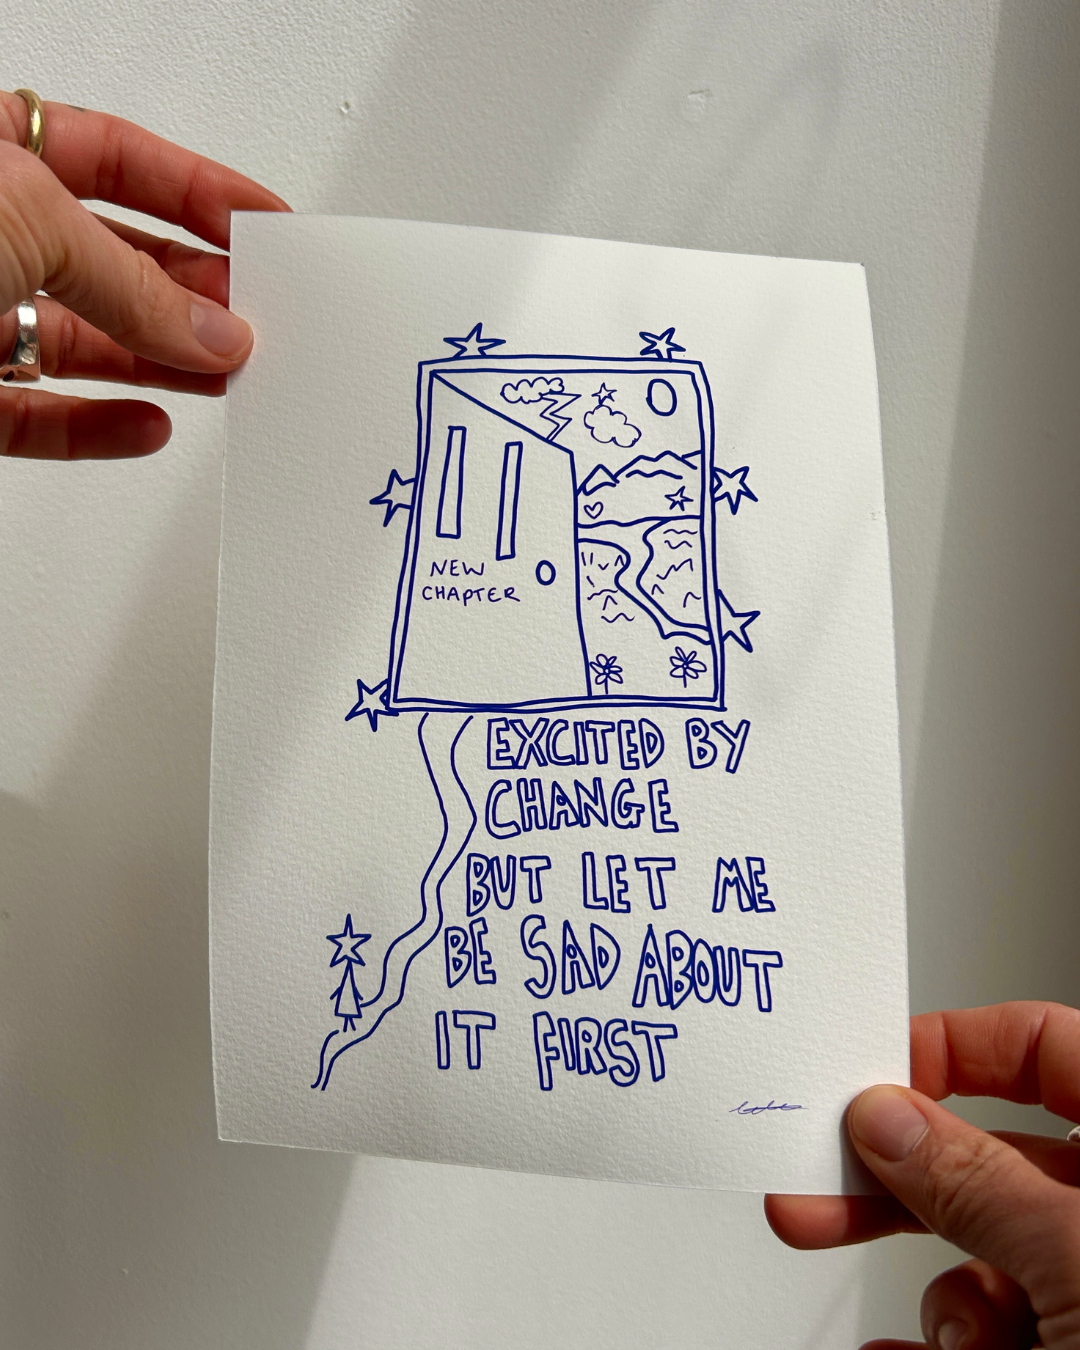 NEW
CHAPTER
EXCITED BY
CHANGE
BUT LET ME
BE SAD ABOUT
IT FIRST